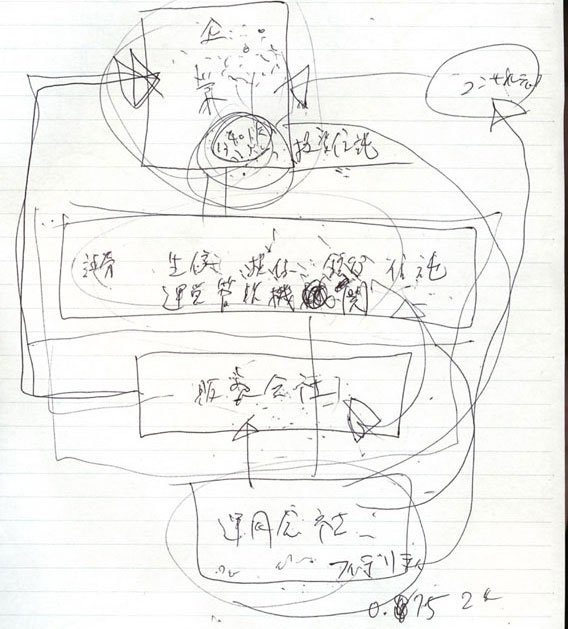 企
業
401K
コンサルティング
投資信託
証券 生保 損保 銀行 信託
運営管理機関
販売会社
運用会社
フィデリティ
0.875 2